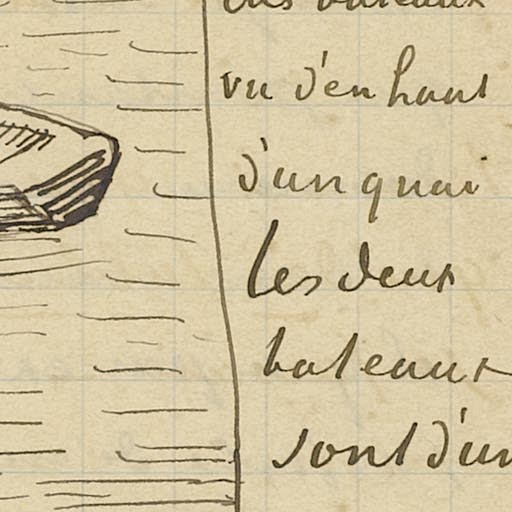 des bateaux
vu d'en haut
d'un quai
les deux
bateaux
sont d'un